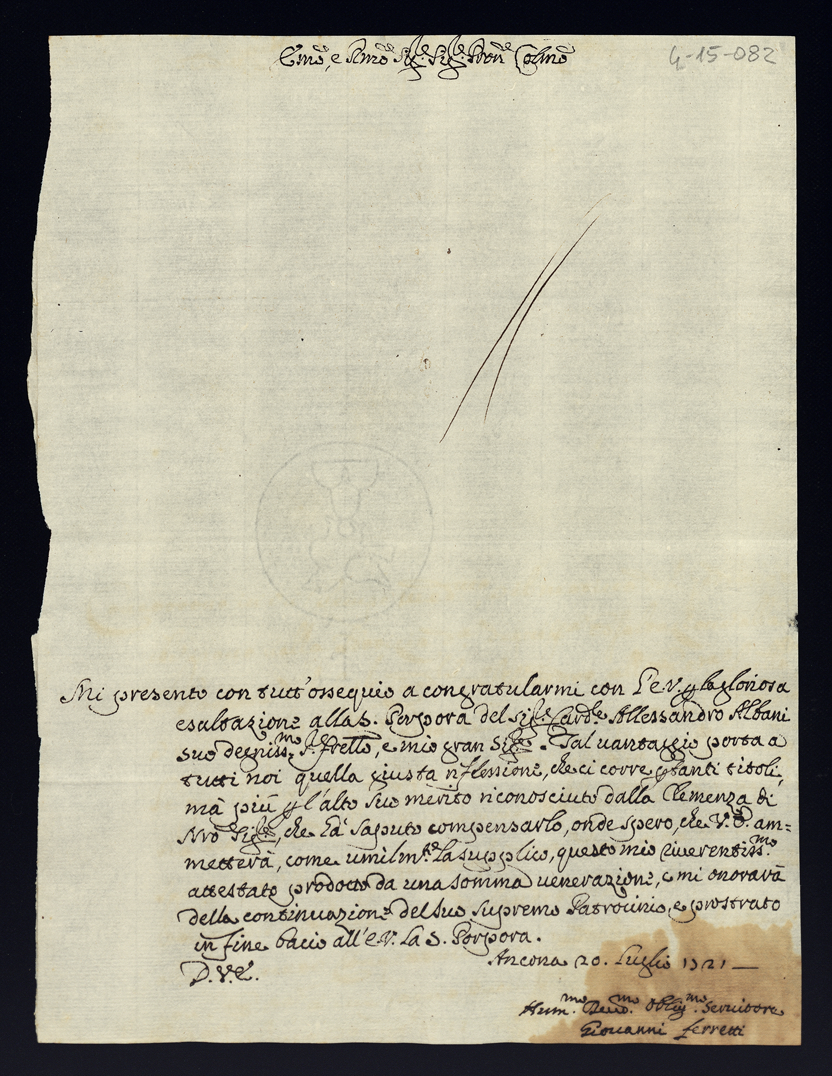 Emo, e Rmo Sigre Sigre Pron Colmo
4-15-082
Mi presento con tutt'ossequio a congratularmi con l'E.V. p la gloriosa
esaltazione alla S. Porpora del Sigre Cardle Allessandro Albani
suo degnissmo Sigr frello, e mio gran Sigre. Tal vantaggio porta a
tutti noi quella giusta riflessione, che ci corre p tanti titoli,
mà più p l'alto suo merito riconosciuto dalla Clemenza di
Nro Sigre, che hà saputo compensarlo, onde spero, che V.E. am=
metterà, come umilmte la supplico, questo mio riverentissmo
attestato prodotto da una somma venerazione, e mi onorarà
della continuazione del suo supremo Patrocinio, e prostrato
in fine bacio all'E.V. la S. Porpora.
Ancona 20. Luglio 1721
D.V.E.
Hummo Devmo Obligmo Servitore
Giovanni Ferretti